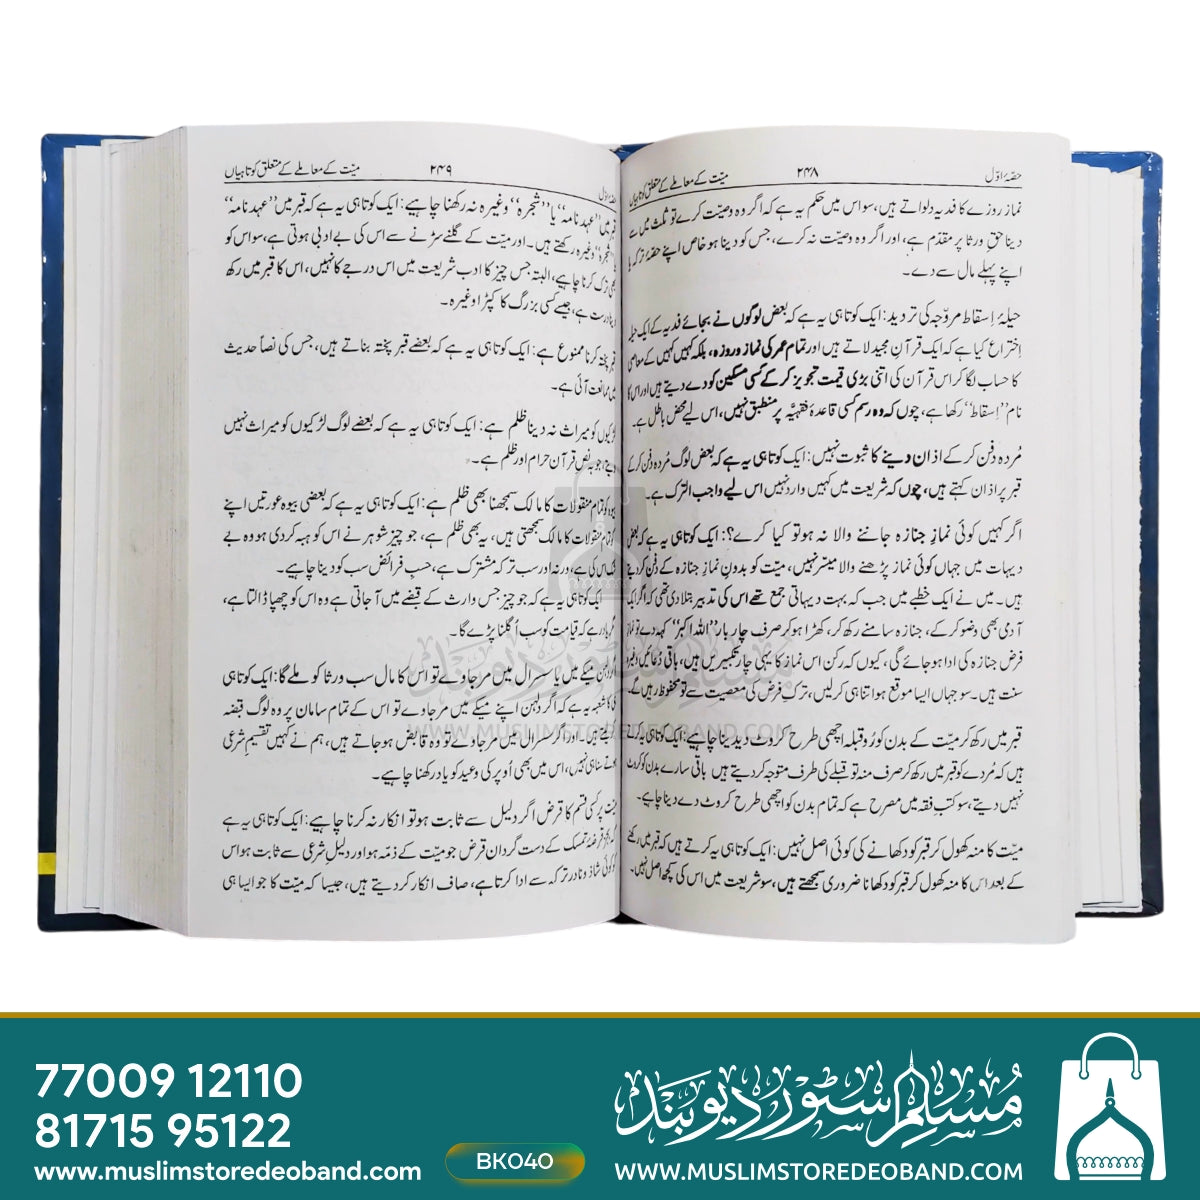 حصہ اوّل ۲۴۸ میّت کے معاملے کے متعلق کوتاہیاں
نماز روزے کا فدیہ دلواتے ہیں، سو اس میں حکم یہ ہے کہ اگر وہ وصیّت کرے تو ثلث میں سے
دینا حقِ ورثا پر مقدّم ہے، اور اگر وہ وصیّت نہ کرے، جس کو دینا ہو خاص اپنے حصّۂ ترکہ یا
اپنے پہلے مال سے دے۔
حیلۂ اِسقاط مروّجہ کی تردید: ایک کوتاہی یہ ہے کہ بعض لوگوں نے بجائے فدیہ کے ایک حیلہ
اِختراع کیا ہے کہ ایک قرآنِ مجید لاتے ہیں اور تمام عمر کی نماز و روزہ، بلکہ کہیں کہیں کے معاصی
کا حساب لگا کر اس قرآن کی اتنی بڑی قیمت تجویز کر کے کسی مسکین کو دے دیتے ہیں اور اس کا
نام ’’اِسقاط‘‘ رکھا ہے، چوں کہ وہ رسم کسی قاعدۂ فقہیَّہ پر منطبق نہیں، اس لیے محض باطل ہے۔
مُردہ دفن کر کے اذان دینے کا ثبوت نہیں: ایک کوتاہی یہ ہے کہ بعض لوگ مُردہ دفن کر کے
قبر پر اذان کہتے ہیں، چوں کہ شریعت میں کہیں وارد نہیں اس لیے واجب الترک ہے۔
اگر کہیں کوئی نمازِ جنازہ جاننے والا نہ ہو تو کیا کرے؟: ایک کوتاہی یہ ہے کہ بعض
دیہات میں جہاں کوئی نماز پڑھنے والا میسّر نہیں، میّت کو بدونِ نمازِ جنازہ کے دفن کر دیتے
ہیں۔ میں نے ایک خطبے میں جب کہ بہت دیہاتی جمع تھے اس کی تدبیر بتلا دی تھی کہ اگر ایک
آدمی بھی وضو کر کے، جنازہ سامنے رکھ کر، کھڑا ہو کر صرف چار بار ’’اللہ اکبر‘‘ کہہ دے تو نمازِ
فرضِ جنازہ کی ادا ہو جائے گی، کیوں کہ رکن اس نماز کا یہی چار تکبیریں ہیں، باقی دُعائیں وغیرہ
سنت ہیں۔ سو جہاں ایسا موقع ہو اتنا ہی کر لیں، ترکِ فرض کی معصیت سے تو محفوظ رہیں گے۔
قبر میں رکھ کر میّت کے بدن کو رُو قبلہ اچھی طرح کروٹ دیدینا چاہیے: ایک کوتاہی یہ کرتے
ہیں کہ مُردے کو قبر میں رکھ کر صرف منہ تو قبلے کی طرف متوجہ کر دیتے ہیں باقی سارے بدن کو کروٹ
نہیں دیتے، سو کتبِ فقہ میں مصرح ہے کہ تمام بدن کو اچھی طرح کروٹ دے دینا چاہیے۔
میّت کا منہ کھول کر قبر کو دکھانے کی کوئی اصل نہیں: ایک کوتاہی یہ کرتے ہیں کہ قبر میں رکھنے
کے بعد اس کا منہ کھول کر قبر کو دکھانا ضروری سمجھتے ہیں، سو شریعت میں اس کی کچھ اصل نہیں۔
۲۴۹ میّت کے معاملے کے متعلق کوتاہیاں
قبر میں ’’عہد نامہ‘‘ یا ’’شجرہ‘‘ وغیرہ نہ رکھنا چاہیے: ایک کوتاہی یہ ہے کہ قبر میں ’’عہد نامہ‘‘
’’شجرہ‘‘ وغیرہ رکھتے ہیں۔ اور میّت کے گلنے سڑنے سے اس کی بے ادبی ہوتی ہے، سو اس کو
بھی ترک کرنا چاہیے، البتہ جس چیز کا ادب شریعت میں اس درجے کا نہیں، اس کا قبر میں رکھ
دینا درست ہے، جیسے کسی بزرگ کا کپڑا وغیرہ۔
قبر پختہ کرنا ممنوع ہے: ایک کوتاہی یہ ہے کہ بعضے قبر پختہ بناتے ہیں، جس کی نصاً حدیث
میں ممانعت آئی ہے۔
لڑکیوں کو میراث نہ دینا ظلم ہے: ایک کوتاہی یہ ہے کہ بعضے لوگ لڑکیوں کو میراث نہیں
دیتے، جو بہ نصِ قرآن حرام اور ظلم ہے۔
بیوہ کو تمام منقولات کا مالک سمجھنا بھی ظلم ہے: ایک کوتاہی یہ ہے کہ بعضی بیوہ عورتیں اپنے
کو تمام منقولات کا مالک سمجھتی ہیں، یہ بھی ظلم ہے، جو چیز شوہر نے اس کو ہبہ کر دی ہو وہ بے
شک اس کی ہے، ورنہ اور سب ترکہ مشترک ہے، حسبِ فرائض سب کو دینا چاہیے۔
ایک کوتاہی یہ ہے کہ جو چیز جس وارث کے قبضے میں آجاتی ہے وہ اس کو چھپا ڈالتا ہے،
مگر یاد رہے کہ قیامت کو سب اُگلنا پڑے گا۔
اگر دلہن میکے میں یا سسرال میں مر جاوے تو اس کا مال سب ورثا کو ملے گا: ایک کوتاہی
یہ ہے کہ اگر دُلہن اپنے میکے میں مر جاوے تو اس کے تمام سامان پر وہ لوگ قبضہ
کرتے ہیں۔ اور اگر سسرال میں مر جاوے تو وہ قابض ہو جاتے ہیں، ہم نے کہیں تقسیمِ شرعی
ہوتے سنا ہی نہیں، اس میں بھی اُوپر کی وعید کو یاد رکھنا چاہیے۔
میّت پر کسی قسم کا قرض اگر دلیل سے ثابت ہو تو انکار نہ کرنا چاہیے: ایک کوتاہی یہ ہے
کہ بجز قرضۂ تمسک کے دست گردان قرض جو میّت کے ذمّہ ہو اور دلیلِ شرعی سے ثابت ہو اس
کو کوئی شاذ و نادر ترکہ سے ادا کرتا ہے، صاف انکار کر دیتے ہیں، جیسا کہ میّت کا جو ایسا ہی
مسلم سٹور دیوبند
WWW.MUSLIMSTOREDEOBAND.COM
77009 12110
81715 95122
www.muslimstoredeoband.com
BK040
مُسلم سٹور دیوبند
WWW.MUSLIMSTOREDEOBAND.COM